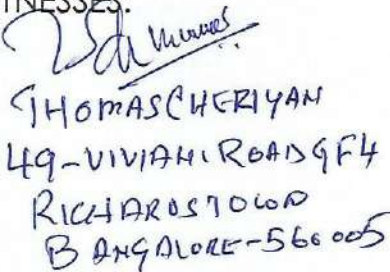 WITNESSES:
THOMAS CHERIYAN
49-VIVIANI ROAD GF4
RICHARDS TOWN
BANGALORE-560005